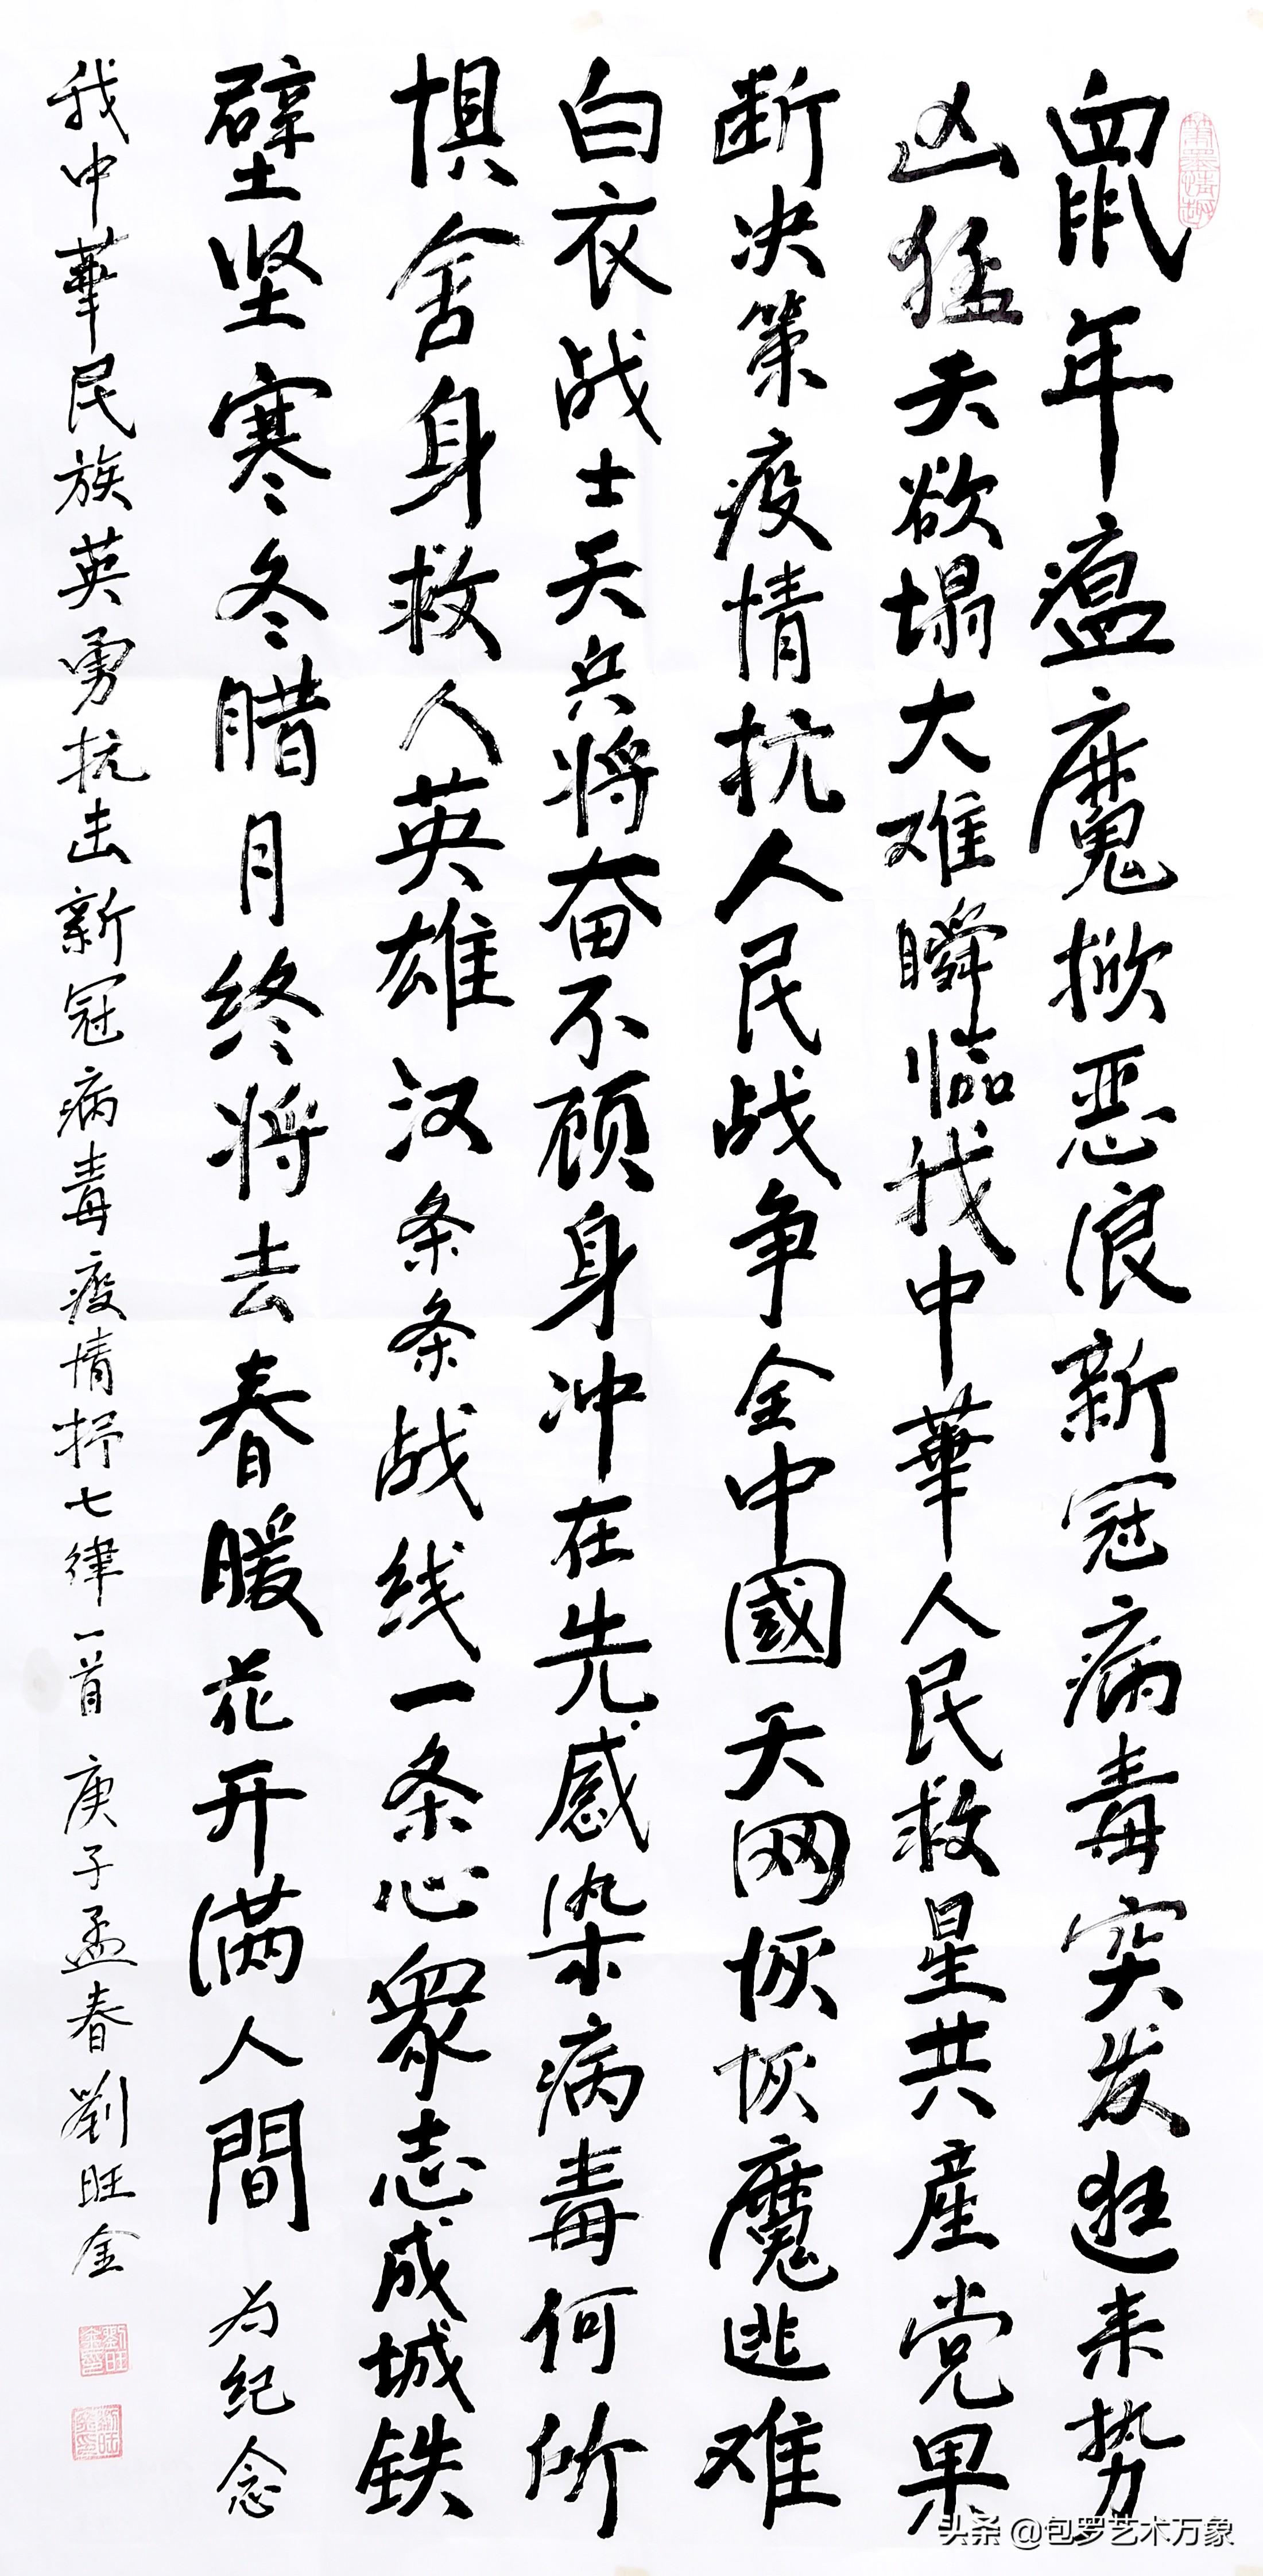 鼠年瘟魔掀恶浪新冠病毒突发逛来势
凶猛天欲塌大难瞬临我中華人民救星共産党果
断决策疫情抗人民战争全中國天网恢恢魔逃难
白衣战士天兵将奋不顾身冲在先感染病毒何所
惧舍身救人英雄汉条条战线一条心眾志成城铁
壁坚寒冬腊月终将去春暖花开满人間 为纪念
我中華民族英勇抗击新冠病毒疫情抒七律一首 庚子孟春劉旺金
头条 @包罗艺术万象